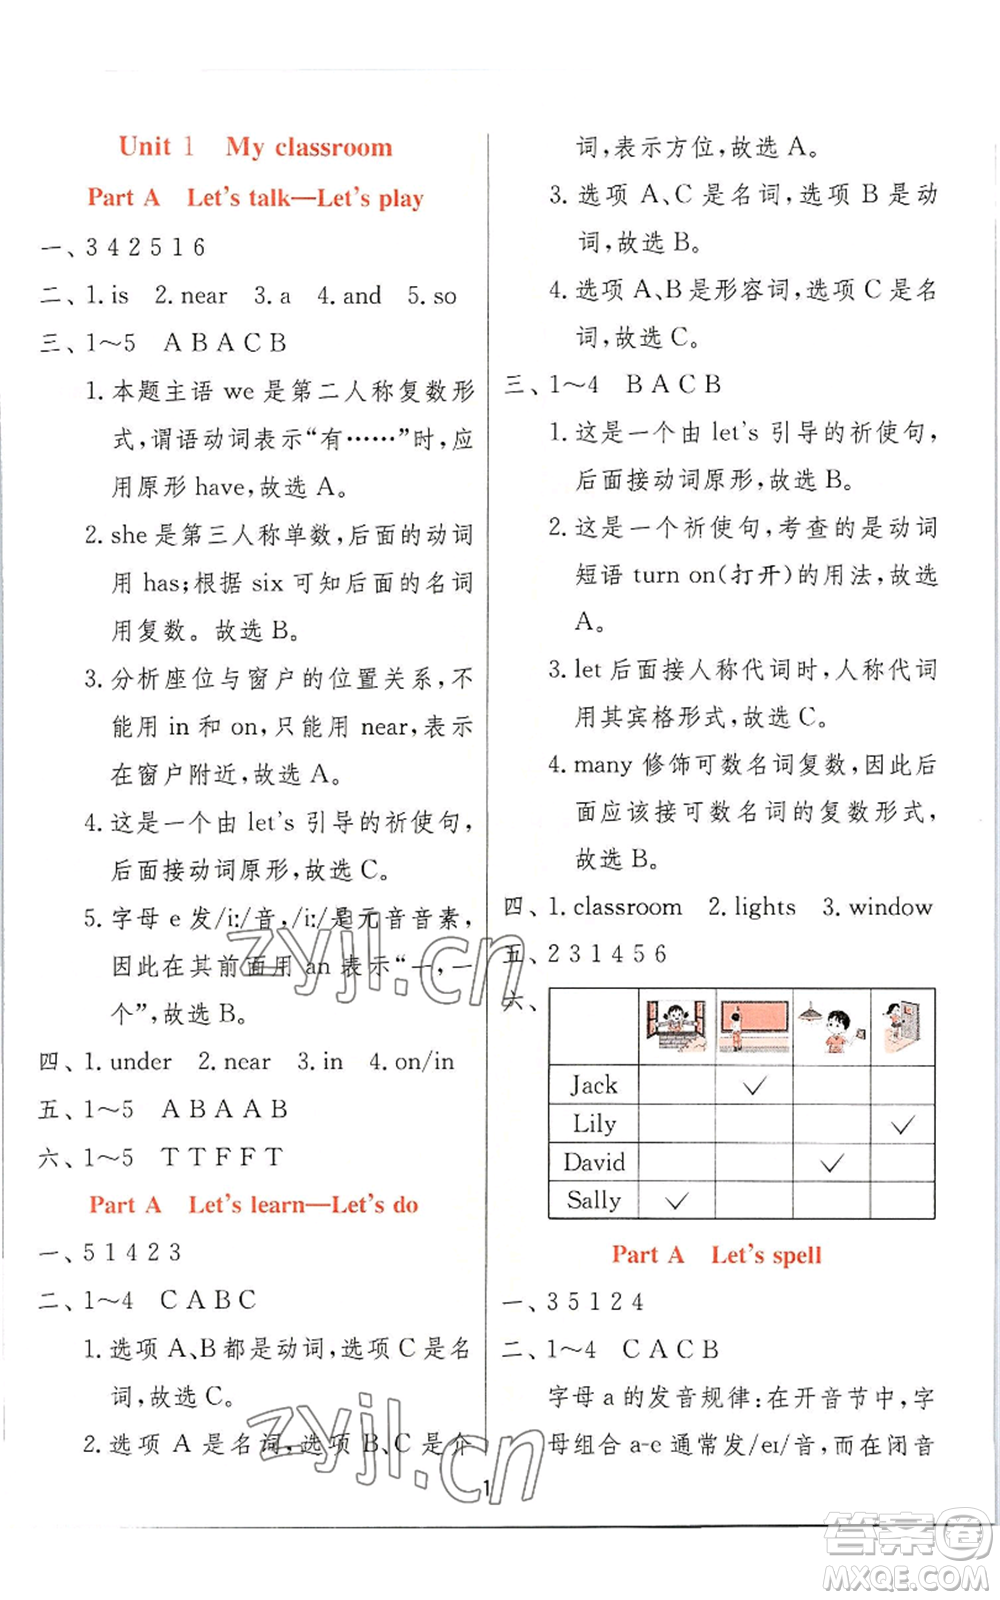 Unit 1 My classroom
Part A Let's talk—Let's play
一、3 4 2 5 1 6
二、1. is 2. near 3. a 4. and 5. so
三、1～5 A B A C B
1. 本题主语 we 是第二人称复数形
式,谓语动词表示“有……”时,应
用原形 have,故选 A。
2. she 是第三人称单数,后面的动词
用 has;根据 six 可知后面的名词
用复数。故选 B。
3. 分析座位与窗户的位置关系,不
能用 in 和 on,只能用 near,表示
在窗户附近,故选 A。
4. 这是一个由 let's 引导的祈使句,
后面接动词原形,故选 C。
5. 字母 e 发/iː/音,/iː/是元音音素,
因此在其前面用 an 表示“一,一
个”,故选 B。
四、1. under 2. near 3. in 4. on/in
五、1～5 A B A A B
六、1～5 T T F F T
Part A Let's learn—Let's do
一、5 1 4 2 3
二、1～4 C A B C
1. 选项 A、B 都是动词,选项 C 是名
词,故选 C。
2. 选项 A 是名词,选项 B、C 是介
词,表示方位,故选 A。
3. 选项 A、C 是名词,选项 B 是动
词,故选 B。
4. 选项 A、B 是形容词,选项 C 是名
词,故选 C。
三、1～4 B A C B
1. 这是一个由 let's 引导的祈使句,
后面接动词原形,故选 B。
2. 这是一个祈使句,考查的是动词
短语 turn on(打开)的用法,故选
A。
3. let 后面接人称代词时,人称代词
用其宾格形式,故选 C。
4. many 修饰可数名词复数,因此后
面应该接可数名词的复数形式,
故选 B。
四、1. classroom 2. lights 3. window
五、2 3 1 4 5 6
六、
Jack ✓
Lily ✓
David ✓
Sally ✓
Part A Let's spell
一、3 5 1 2 4
二、1～4 C A C B
字母 a 的发音规律:在开音节中,字
母组合 a-e 通常发/eɪ/音,而在闭音
1
zyjl.cn
zyjl.cn
答案圈
MXQE.COM